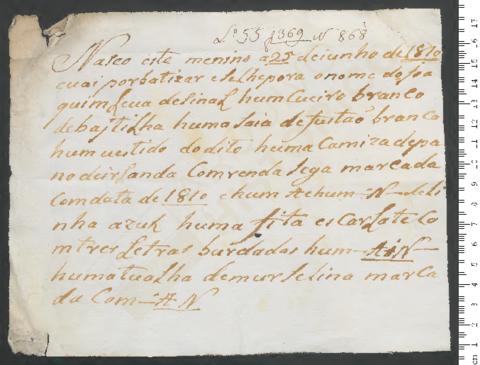 Lº 55 1369 N 868
Nasco este menino a 25 de iunho de 1810
euai por batizar e se lhe pora o nome do Joa
quim Leua de Sinal hum Cueiro branco
de bajtilha huma Saia de fustaõ branco
hum uestido do dito huma Camiza de pa
no de irlanda Com renda Sega marcada
Com data de 1810 e hum A e hum N de Li
nha azul huma fita es Carlate Co
m tres Letras burdadas hum A i N
huma tualha de mur Selina marca
da Com A N